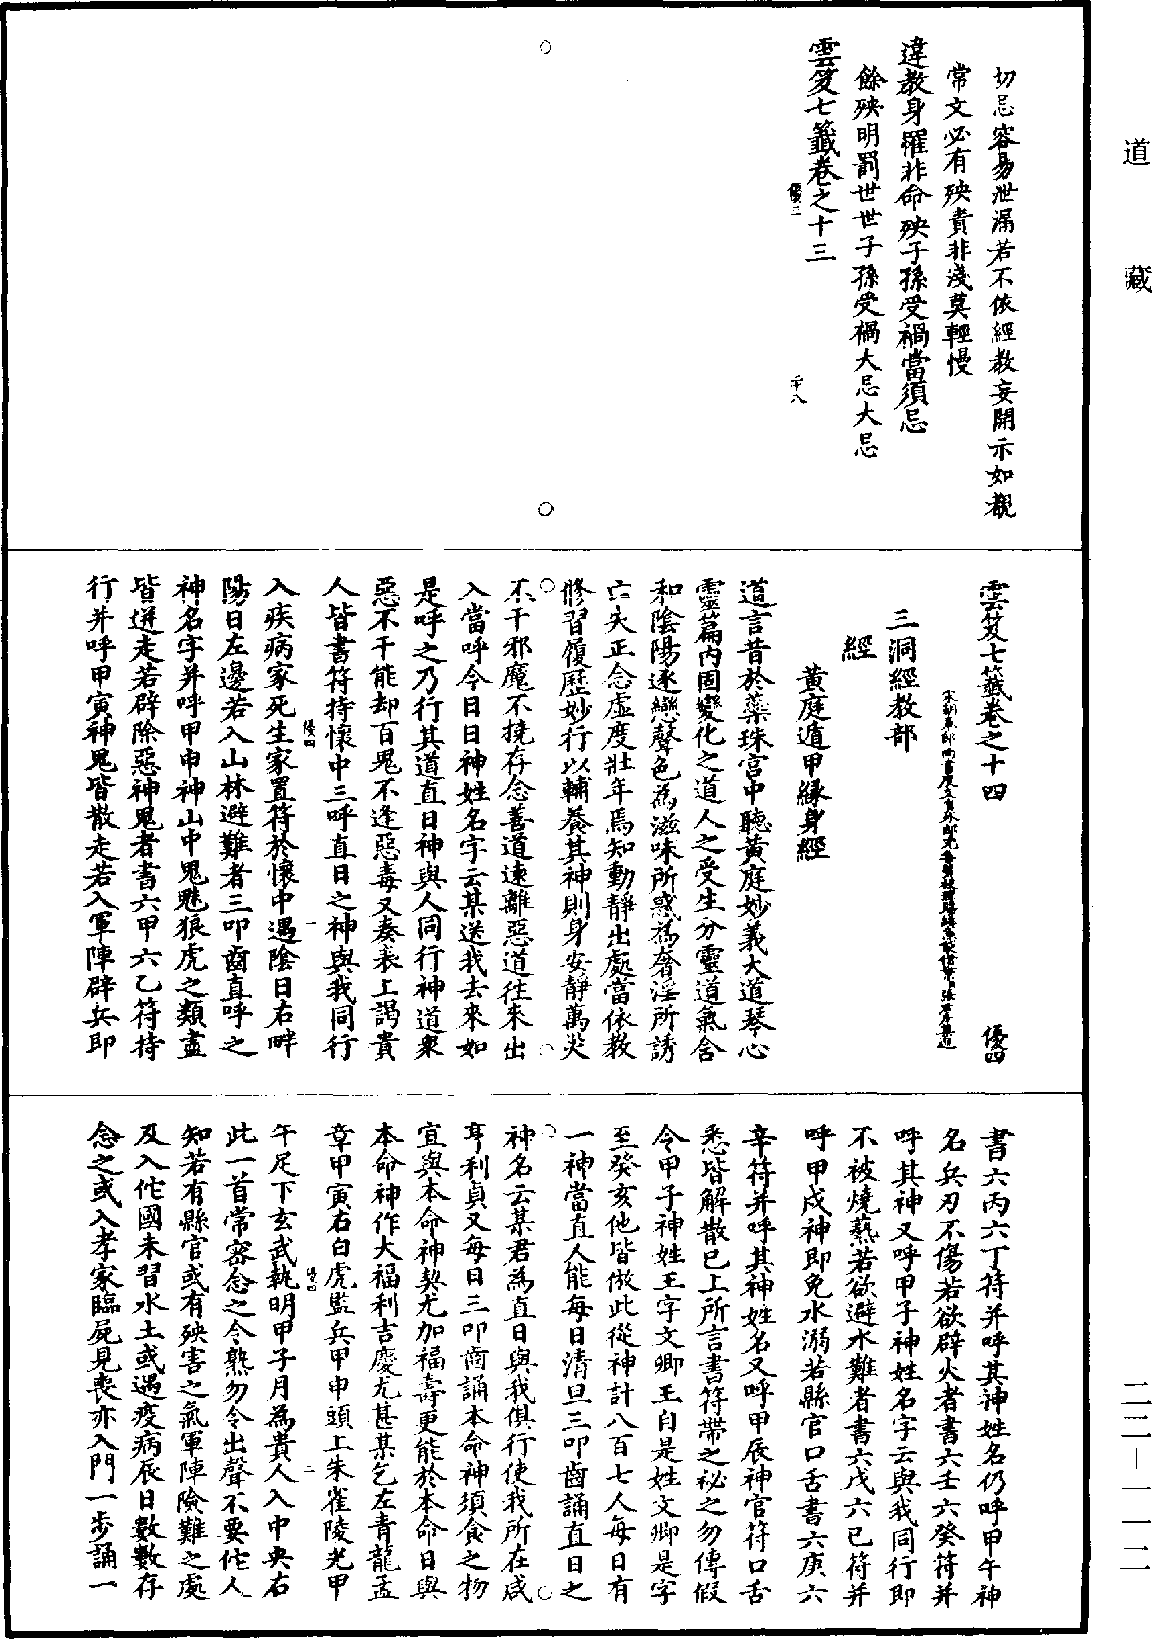 道藏
切忌容易泄漏若不依經教妄開示如覩
常文必有殃責非淺莫輕慢
違教身罹非命殃于孫受禍當須忌
餘殃明罰世世子孫受禍大忌大忌
雲笈七籤卷之十三
優三
二十八
雲笈七籤卷之十四
優四
三洞經教部
經
黃庭遁甲緣身經
道言昔於蘂珠宮中聽黃庭妙義大道琴心
靈篇内固變化之道人之受生分靈道氣含
和陰陽逐戀聲色為滋味所惑為奢淫所誘
亡失正念虛度壯年焉知動靜出處當依教
修習履歷妙行以輔養其神則身安靜萬災
不干邪魔不撓存念善道遠離惡道往來出
入當呼今日日神姓名字云某送我去來如
是呼之乃行其道直日神與人同行神道衆
惡不干能却百鬼不逢惡毒又奏表上謁貴
人皆書符持懷中三呼直日之神與我同行
優四
一
入疾病家死生家置符於懷中遇陰日右畔
陽日左邊若入山林避難者三叩齒直呼之
神名字并呼甲申神山中鬼魅狼虎之類盡
皆迸走若辟除惡神鬼者書六甲六乙符持
行并呼甲寅神鬼皆散走若入軍陣辟兵即
書六丙六丁符并呼其神姓名仍呼甲午神
名兵刃不傷若欲辟火者書六壬六癸符并
呼其神又呼甲子神姓名字云與我同行即
不被燒爇若欲避水難者書六戊六己符并
呼甲戌神即免水溺若縣官口舌書六庚六
辛符并呼其神姓名又呼甲辰神官符口舌
悉皆解散已上所言書符帶之祕之勿傳假
令甲子神姓王字文卿王自是姓文卿是字
至癸亥他皆倣此從神計八百七人每日有
一神當直人能每日清旦三叩齒誦直日之
神名云某君為直日與我俱行使我所在咸
亨利貞又每日三叩齒誦本命神須食之物
宜與本命神契尤加福壽更能於本命日與
本命神作大福利吉慶尤甚某乞左青龍孟
章甲寅右白虎監兵甲申頭上朱雀陵光甲
優四
二
午足下玄武執明甲子月為貴人入中央右
此一首常密念之令熟勿令出聲不要佗人
知若有縣官或有殃害之氣軍陣險難之處
及入佗國未習水土或遇疫病辰日數數存
念之或入孝家臨屍見喪亦入門一步誦一
二二—一一二